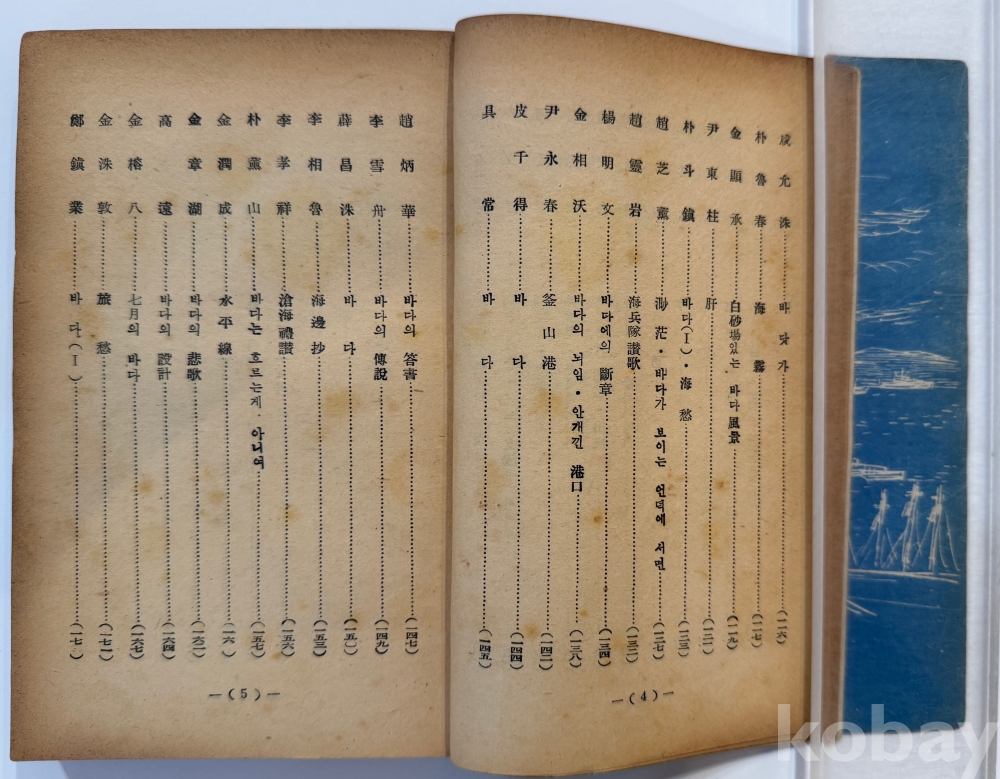 成允洙……바닷가……(一一六)
朴魯春……海霧……(一一七)
金顯承……白砂場있는 바다風景……(一一九)
尹東柱……肝……(一二一)
朴斗鎭……바다(I)・海愁……(一二三)
趙芝薰……渺茫・바다가 보이는 언덕에 서면……(一二七)
趙靈岩……海兵隊讚歌……
楊明文……바다에의 斷章……(一三四)
金相沃……바다의 뇌임・안개낀 港口……(一三八)
尹永春……釜山港……(一四二)
皮千得……바다……(一四四)
具常……바다……(一四五)
—(4)—
趙炳華……바다의 答書……(一四七)
李雪舟……바다의 傳說……(一四九)
薛昌洙……바다……(一五〇)
李相魯……海邊抄……(一五三)
李孝祥……滄海禮讚……(一五六)
朴薰山……바다는 흐르는게 아니여……(一五七)
金潤成……水平線……
金章湖……바다의 悲歌……(一六二)
高遠……바다의 設計……(一六四)
金榕八……七月의 바다……(一六七)
金洙敦……旅愁……(一七一)
鄭鎭業……바다(I)……
—(5)—
kobay